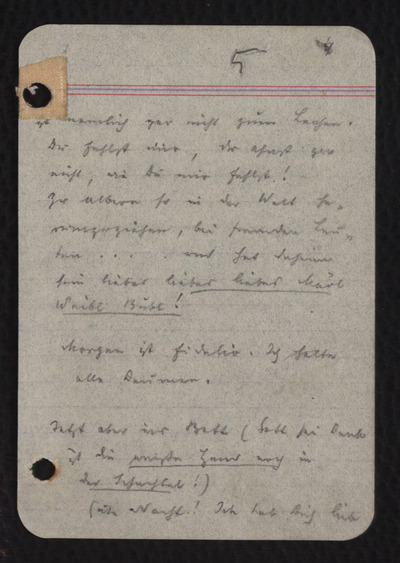 5
ist nemlich gar nicht zum Lachen.
Du fehlst mir, Du ahnst gar
nicht, wie Du mir fehlst!
Zu albern so in der Welt he-
rumzuziehen, bei fremden Leu-
ten . . . . und hat daheim
sein liebes liebes liebes
Weibi Bubi!
Morgen ist Fidelio. Ich halte
alle Daumen.
Jetzt aber ins Bett (Gott sei Dank
ist die noch in
der Schachtel!)
Gute Nacht! Ich hab Dich lieb